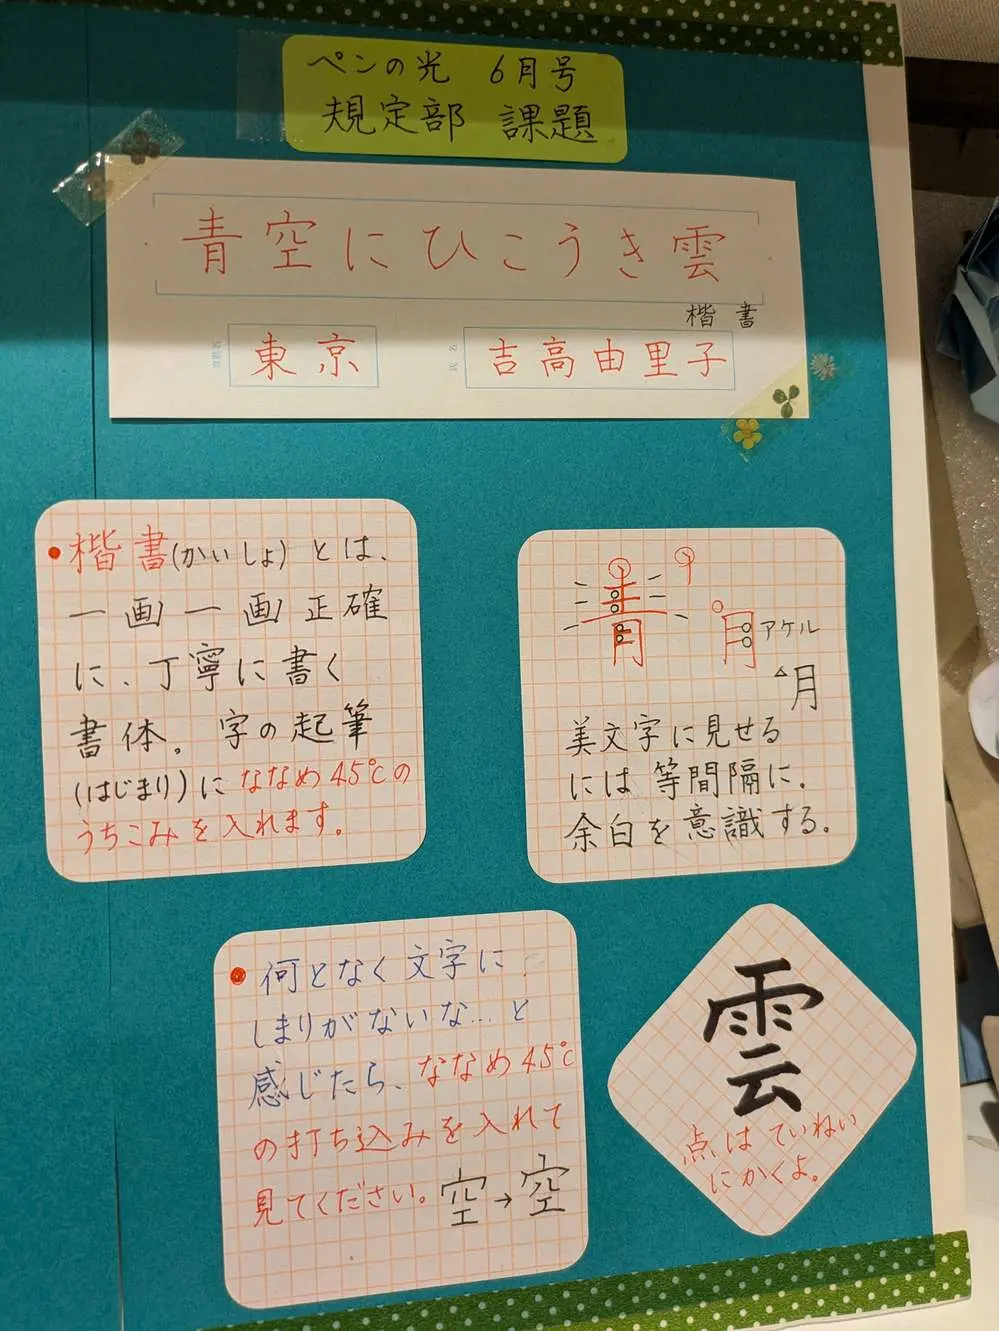 ペンの光 6月号
規定部 課題
青空にひこうき雲
楷書
東京
氏名
吉高由里子
•楷書(かいしょ)とは、
一画一画正確
に、丁寧に書く
書体。字の起筆
(はじまり)にななめ45℃の
うちこみを入れます。
青
月 アケル
月
美文字に見せる
には等間隔に。
余白を意識する。
•何となく文字に
しまりがないな…と
感じたら、ななめ45℃
の打ち込みを入れて
見てください。空→空
雲
点はていねい
にかくよ。